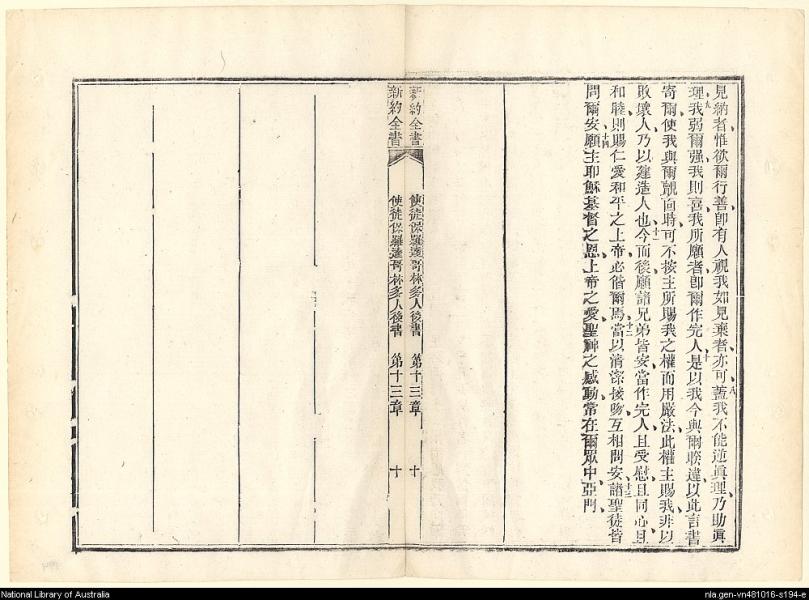 見納者惟欲爾行善卽有人視我如見棄者亦可蓋我不能逆眞理乃助眞
八
理我弱爾强我則喜我所願者卽爾作完人是以我今與爾睽違以此言書
九
十
寄爾使我與爾覿面時可不按主所賜我之權而用嚴法此權主賜我非以
敗壞人乃以建造人也今而後願諸兄弟皆安當作完人且受慰且同心且
十一
和睦則賜仁愛和平之上帝必偕爾焉當以清潔接吻互相問安諸聖徒皆
十二
十三
問爾安願主耶穌基督之恩上帝之愛聖神之感動常在爾眾中亞門
十四
新約全書
使徒保羅達哥林多人後書
第十三章
十
新約全書
使徒保羅達哥林多人後書
第十三章
十
National Library of Australia
nla.gen-vn481016-s194-e